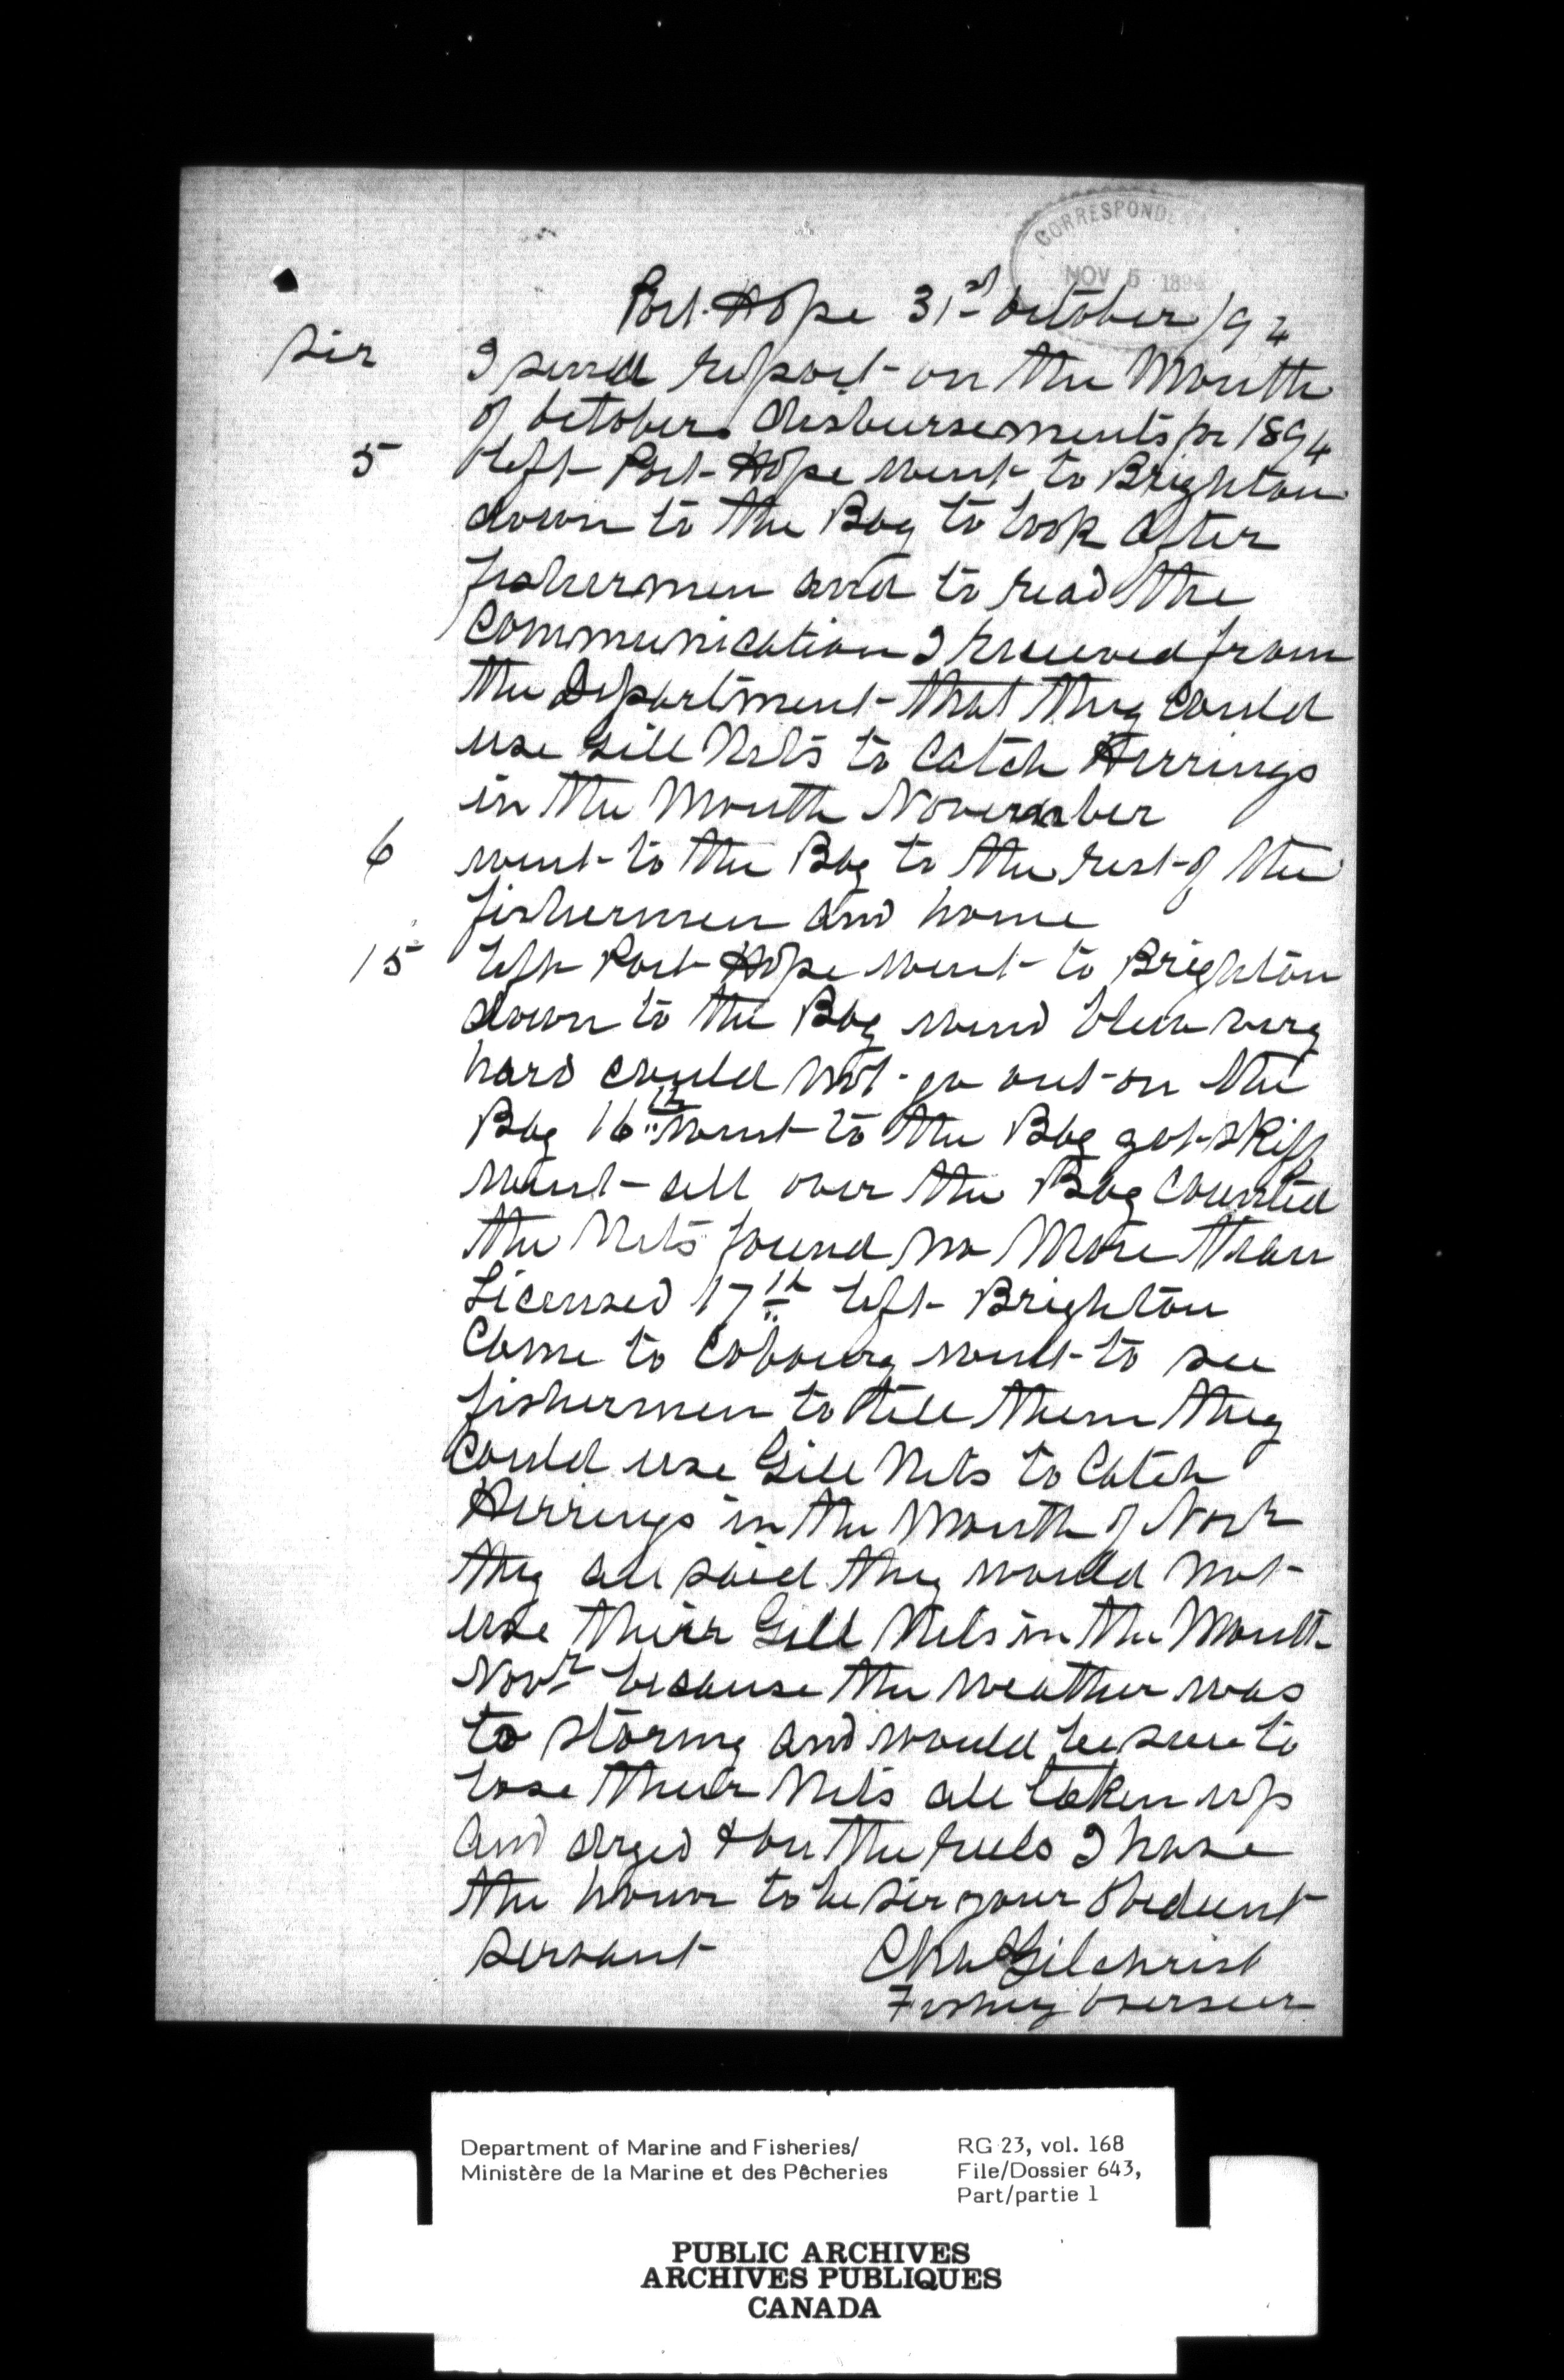 CORRESPOND
NOV 5 189
Port Hope 31st October /94
Sir I send report on the Month
of October disbursements for 1894
5 left Port Hope went to Brighton
down to the Bay to look after
fishermen and to read the
Communication I received from
the Department that they could
use Gill Nets to Catch Herrings
in the Month November
6 went to the Bay to the rest of the
fishermen and home
15 left Port Hope went to Brighton
down to the Bay wind blew very
hard could not go out on the
Bay 16th went to the Bay got skiff
went all over the Bay Counted
the Nets found no More than
Licensed 17th left Brighton
Come to Cobourg went to see
fishermen to tell them they
Could use Gill Nets to Catch
Herrings in the Month of Novr
they all said they would not
use their Gill Nets in the Month
Novr because the weather was
to stormy and would be sure to
lose their Nets all taken up
and dryed on the reels I have
the honor to be Sir your Obedient
Servant Chas Gilchrist
Fishery Overseer
Department of Marine and Fisheries/ RG 23, vol. 168
Ministère de la Marine et des Pêcheries File/Dossier 643,
Part/partie 1
PUBLIC ARCHIVES
ARCHIVES PUBLIQUES
CANADA